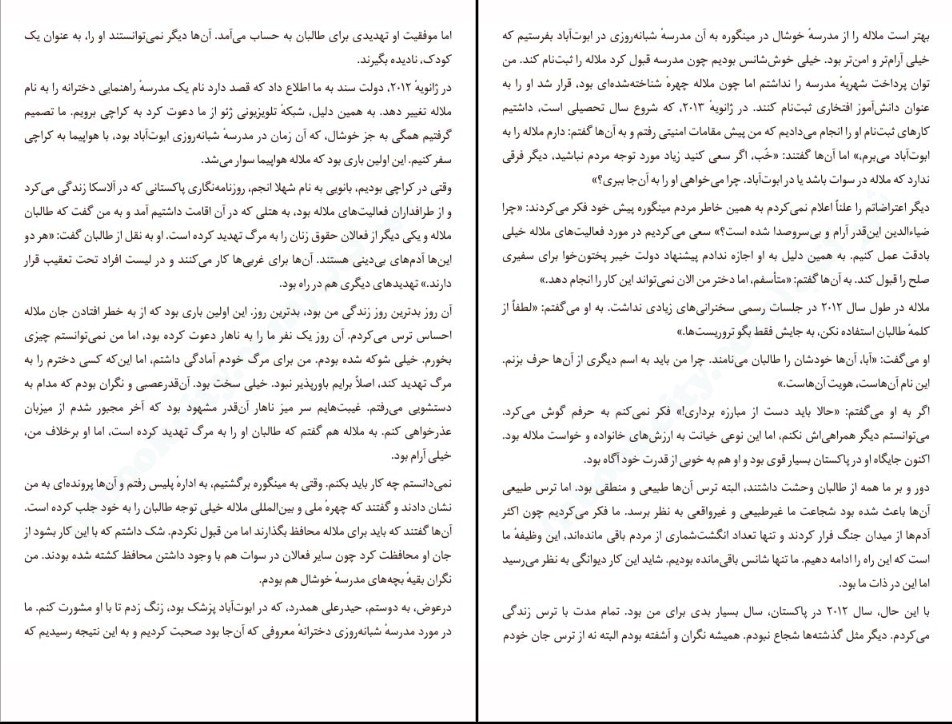 اما موفقیت او تهدیدی برای طالبان به حساب می‌آمد. آن‌ها دیگر نمی‌توانستند او را، به عنوان یک
کودک، نادیده بگیرند.
در ژانویهٔ ۲۰۱۲، دولت سند به ما اطلاع داد که قصد دارد نام یک مدرسهٔ راهنمایی دخترانه را به نام
ملاله تغییر دهد. به همین دلیل، شبکهٔ تلویزیونی ژئو از ما دعوت کرد به کراچی برویم. ما تصمیم
گرفتیم همگی به جز خوشال، که آن زمان در مدرسهٔ شبانه‌روزی ابوت‌آباد بود، با هواپیما به کراچی
سفر کنیم. این اولین باری بود که ملاله هواپیما سوار می‌شد.
وقتی در کراچی بودیم، بانویی به نام شهلا انجم، روزنامه‌نگاری پاکستانی که در آلاسکا زندگی می‌کرد
و از طرفداران فعالیت‌های ملاله بود، به هتلی که در آن اقامت داشتیم آمد و به من گفت که طالبان
ملاله و یکی دیگر از فعالان حقوق زنان را به مرگ تهدید کرده است. او به نقل از طالبان گفت: «هر دو
این‌ها آدم‌های بی‌دینی هستند. آن‌ها برای غربی‌ها کار می‌کنند و در لیست افراد تحت تعقیب قرار
دارند.» تهدیدهای دیگری هم در راه بود.
آن روز بدترین روز زندگی من بود، بدترین روز. این اولین باری بود که از به خطر افتادن جان ملاله
احساس ترس می‌کردم. آن روز یک نفر ما را به ناهار دعوت کرده بود، اما من نمی‌توانستم چیزی
بخورم. خیلی شوکه شده بودم. من برای مرگ خودم آمادگی داشتم، اما این‌که کسی دخترم را به
مرگ تهدید کند، اصلاً برایم باورپذیر نبود. خیلی سخت بود. آن‌قدرعصبی و نگران بودم که مدام به
دستشویی می‌رفتم. غیبت‌هایم سر میز ناهار آن‌قدر مشهود بود که آخر مجبور شدم از میزبان
عذرخواهی کنم. به ملاله هم گفتم که طالبان او را به مرگ تهدید کرده است، اما او برخلاف من،
خیلی آرام بود.
نمی‌دانستم چه کار باید بکنم. وقتی به مینگوره برگشتیم، به ادارهٔ پلیس رفتم و آن‌ها پرونده‌ای به من
نشان دادند و گفتند که چهرهٔ ملی و بین‌المللی ملاله خیلی توجه طالبان را به خود جلب کرده است.
آن‌ها گفتند که باید برای ملاله محافظ بگذارند اما من قبول نکردم. شک داشتم که با این کار بشود از
جان او محافظت کرد چون سایر فعالان در سوات هم با وجود داشتن محافظ کشته شده بودند. من
نگران بقیهٔ بچه‌های مدرسهٔ خوشال هم بودم.
درعوض، به دوستم، حیدرعلی همدرد، که در ابوت‌آباد پزشک بود، زنگ زدم تا با او مشورت کنم. ما
در مورد مدرسهٔ شبانه‌روزی دخترانهٔ معروفی که آن‌جا بود صحبت کردیم و به این نتیجه رسیدیم که
بهتر است ملاله را از مدرسهٔ خوشال در مینگوره به آن مدرسهٔ شبانه‌روزی در ابوت‌آباد بفرستیم که
خیلی آرام‌تر و امن‌تر بود. خیلی خوش‌شانس بودیم چون مدرسه قبول کرد ملاله را ثبت‌نام کند. من
توان پرداخت شهریهٔ مدرسه را نداشتم اما چون ملاله چهرهٔ شناخته‌شده‌ای بود، قرار شد او را به
عنوان دانش‌آموز افتخاری ثبت‌نام کنند. در ژانویهٔ ۲۰۱۳، که شروع سال تحصیلی است، داشتیم
کارهای ثبت‌نام او را انجام می‌دادیم که من پیش مقامات امنیتی رفتم و به آن‌ها گفتم: دارم ملاله را به
ابوت‌آباد می‌برم.» اما آن‌ها گفتند: «خُب، اگر سعی کنید زیاد مورد توجه مردم نباشید، دیگر فرقی
ندارد که ملاله در سوات باشد یا در ابوت‌آباد. چرا می‌خواهی او را به آن‌جا ببری؟»
دیگر اعتراضاتم را علناً اعلام نمی‌کردم به همین خاطر مردم مینگوره پیش خود فکر می‌کردند: «چرا
ضیاءالدین این‌قدر آرام و بی‌سروصدا شده است؟» سعی می‌کردیم در مورد فعالیت‌های ملاله خیلی
بادقت عمل کنیم. به همین دلیل به او اجازه ندادم پیشنهاد دولت خیبر پختون‌خوا برای سفیری
صلح را قبول کند. به آن‌ها گفتم: «متأسفم، اما دختر من الان نمی‌تواند این کار را انجام دهد.»
ملاله در طول سال ۲۰۱۲ در جلسات رسمی سخنرانی‌های زیادی نداشت. به او می‌گفتم: «لطفاً از
کلمهٔ طالبان استفاده نکن، به جایش فقط بگو تروریست‌ها.»
او می‌گفت: «آبا، آن‌ها خودشان را طالبان می‌نامند. چرا من باید به اسم دیگری از آن‌ها حرف بزنم.
این نام آن‌هاست، هویت آن‌هاست.»
اگر به او می‌گفتم: «حالا باید دست از مبارزه برداری!» فکر نمی‌کنم به حرفم گوش می‌کرد.
می‌توانستم دیگر همراهی‌اش نکنم، اما این نوعی خیانت به ارزش‌های خانواده و خواست ملاله بود.
اکنون جایگاه او در پاکستان بسیار قوی بود و او هم به خوبی از قدرت خود آگاه بود.
دور و بر ما همه از طالبان وحشت داشتند، البته ترس آن‌ها طبیعی و منطقی بود. اما ترس طبیعی
آن‌ها باعث شده بود شجاعت ما غیرطبیعی و غیرواقعی به نظر برسد. ما فکر می‌کردیم چون اکثر
آدم‌ها از میدان جنگ فرار کردند و تنها تعداد انگشت‌شماری از مردم باقی مانده‌اند، این وظیفهٔ ما
است که این راه را ادامه دهیم. ما تنها شانس باقی‌مانده بودیم. شاید این کار دیوانگی به نظر می‌رسید
اما این در ذات ما بود.
با این حال، سال ۲۰۱۲ در پاکستان، سال بسیار بدی برای من بود. تمام مدت با ترس زندگی
می‌کردم. دیگر مثل گذشته‌ها شجاع نبودم. همیشه نگران و آشفته بودم البته نه از ترس جان خودم